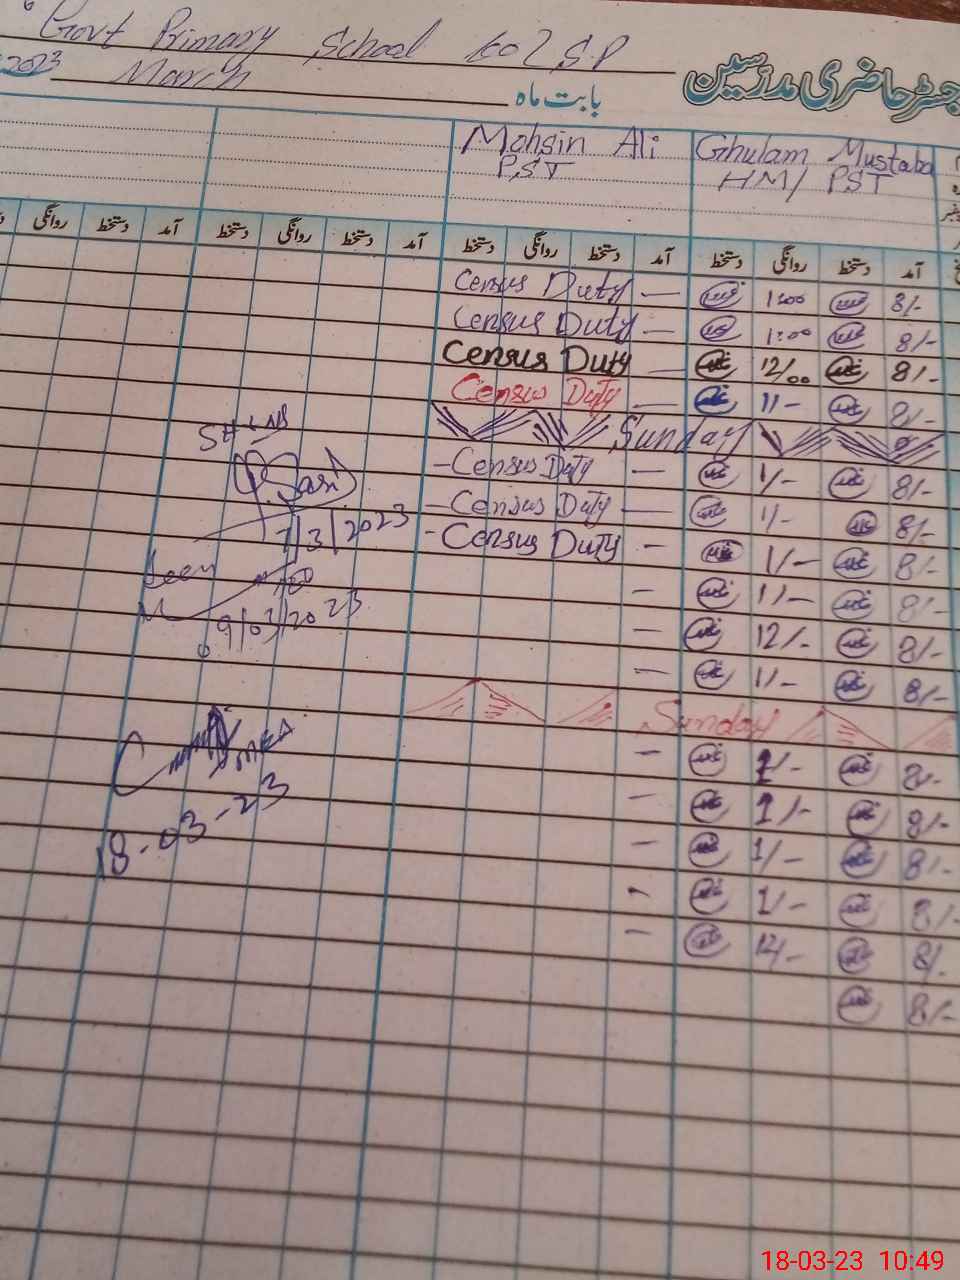 Govt Primary School
2023 March بابت ماہ
رجسٹر حاضری مدرسین
Mohsin Ali
PST
Ghulam Mustaba
HM/ PST
آمد دستخط روانگی دستخط آمد دستخط روانگی دستخط آمد دستخط روانگی دستخط آمد دستخط روانگی
8/- 1:00 — Census Duty
8/- 1:00 — Census Duty
8/- 12/00 — Census Duty
8/- 11- — Census Duty
Sunday
8/- 1/- — Census Duty -
8/- 1/- — Census Duty -
8/- 1/- — Census Duty -
8/- 1/- —
8/- 12/- —
8/- 1/- —
Sunday
8/- 1/- —
8/- 1/- —
8/- 1/- —
8/- 1/- —
8/- 12/- —
8/-
7/3/2023
Seen
09/03/2023
MEA
18-03-23
18-03-23 10:49